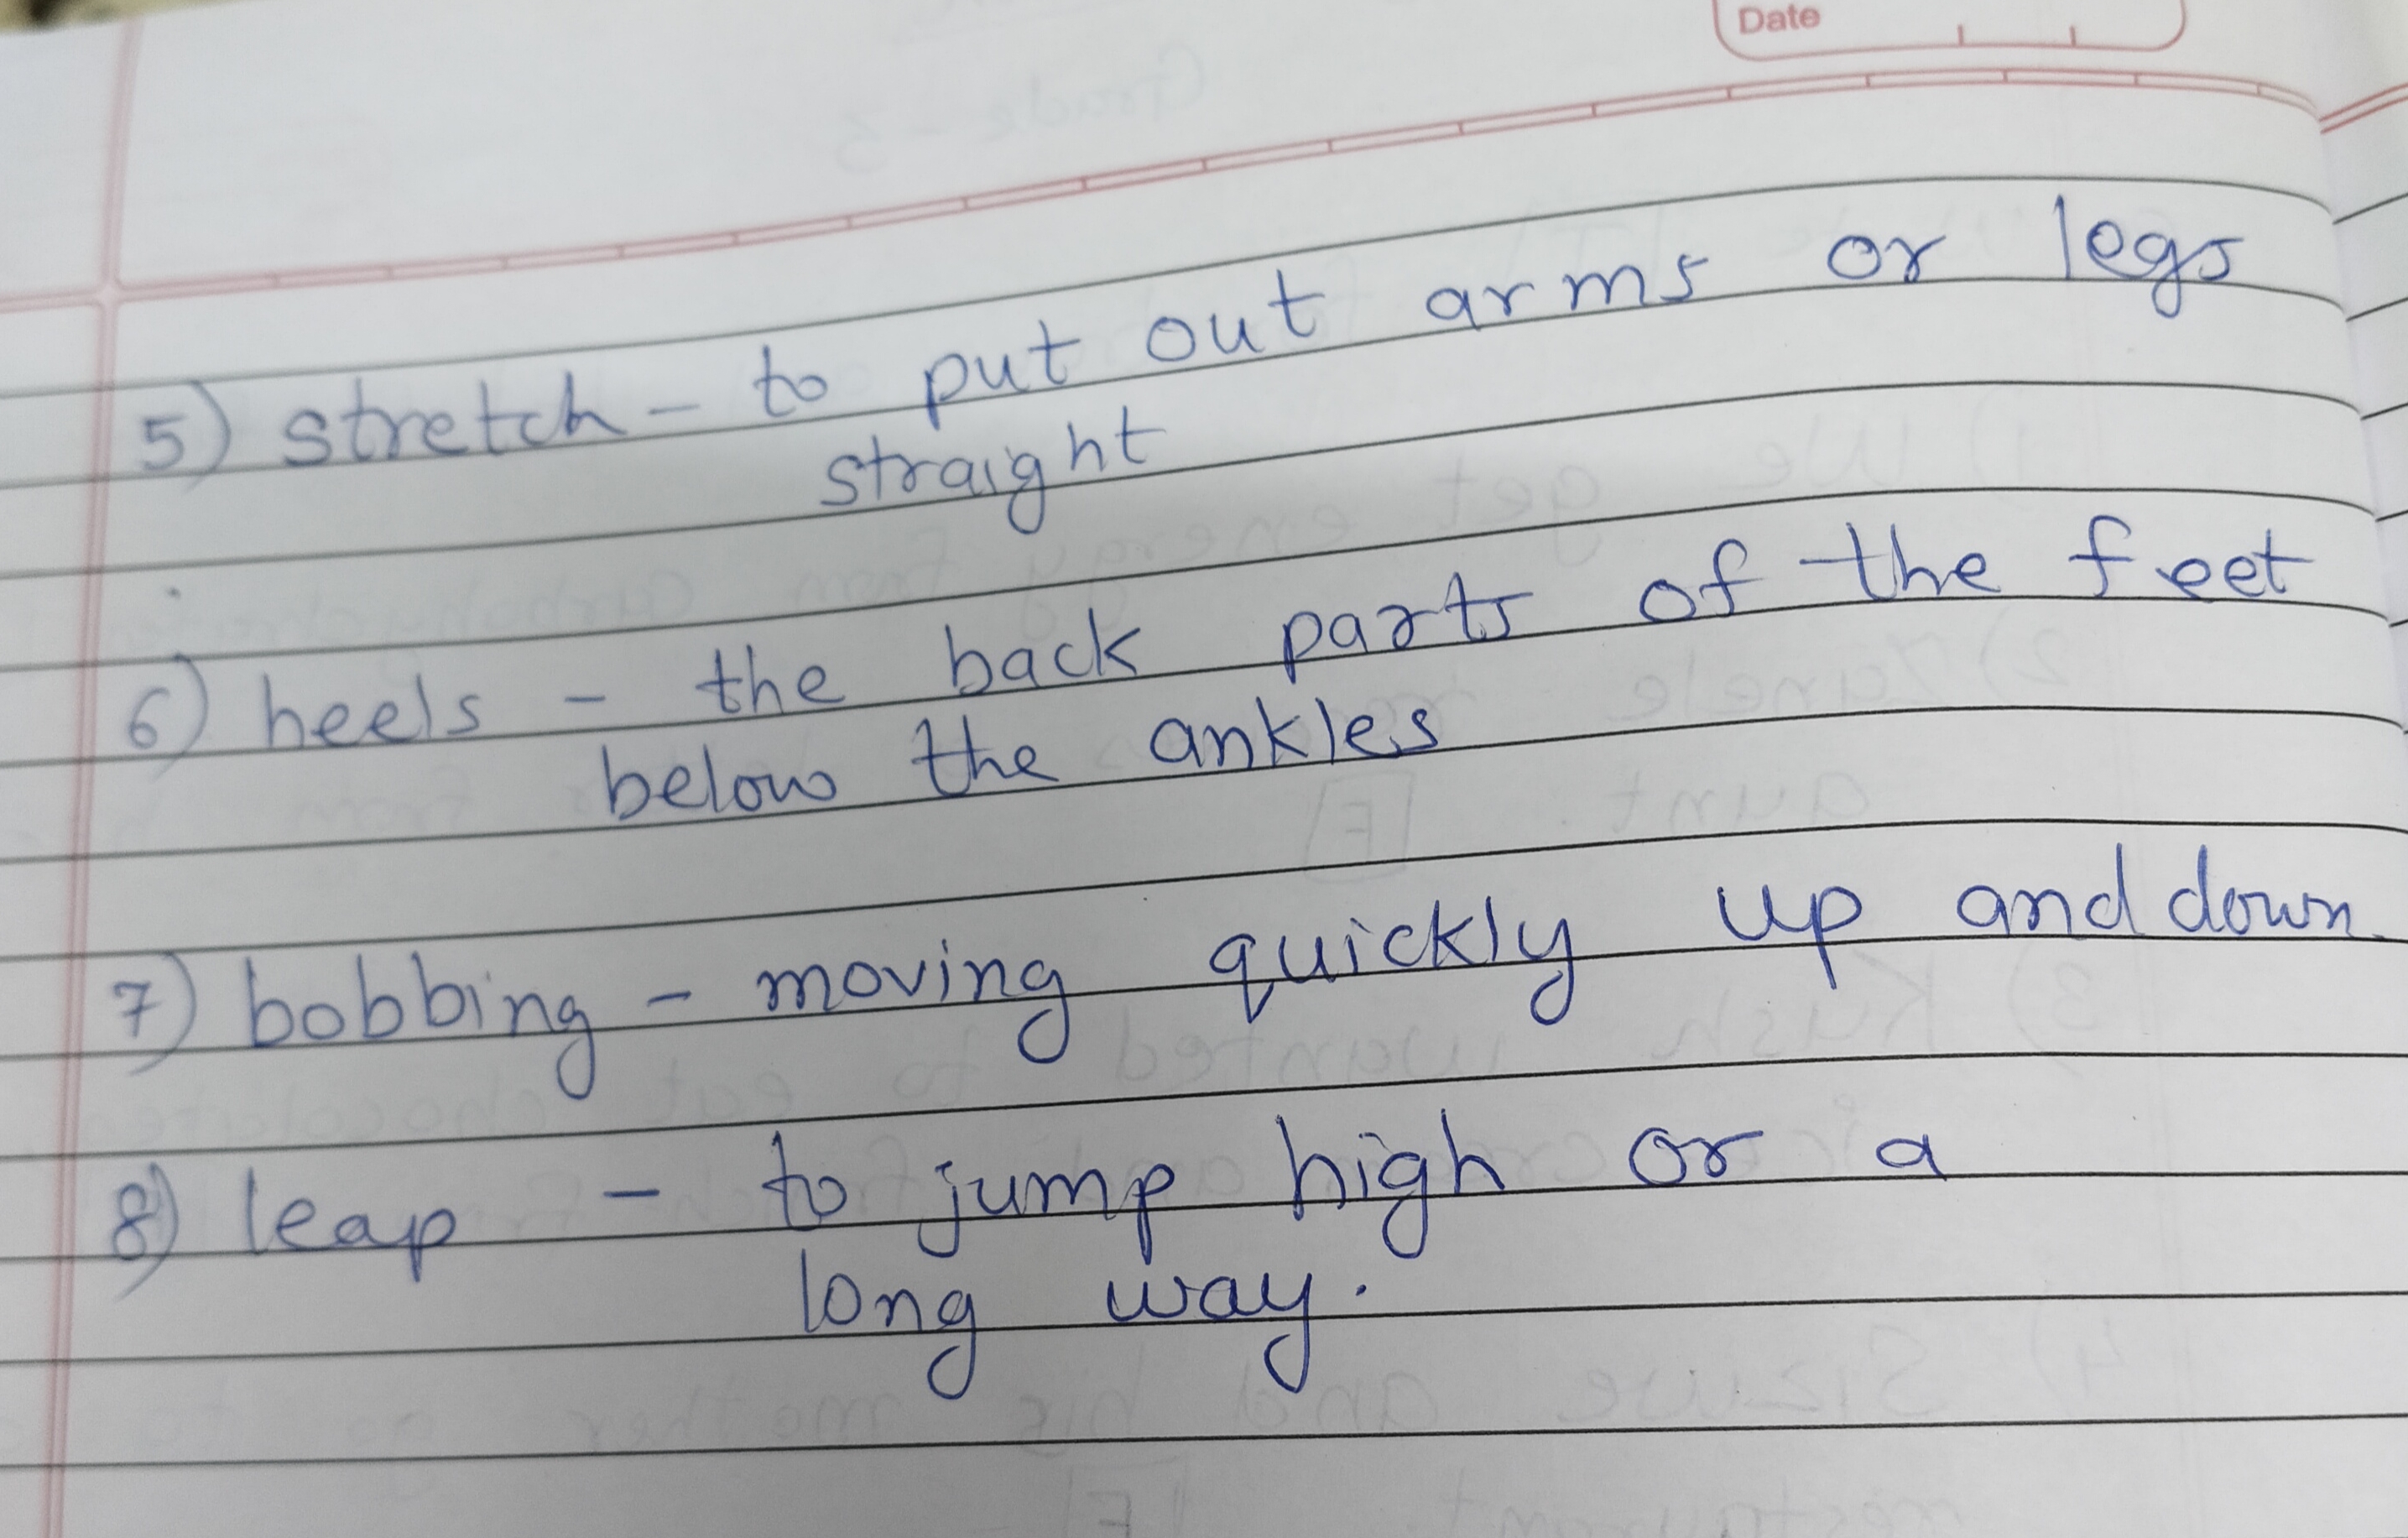 Date
5) stretch - to put out arms or legs
straight
6) heels - the back parts of the feet
below the ankles
7) bobbing - moving quickly up and down
8) leap - to jump high or a
long way.